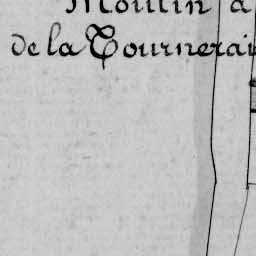 Moulin à
de la Tournerai